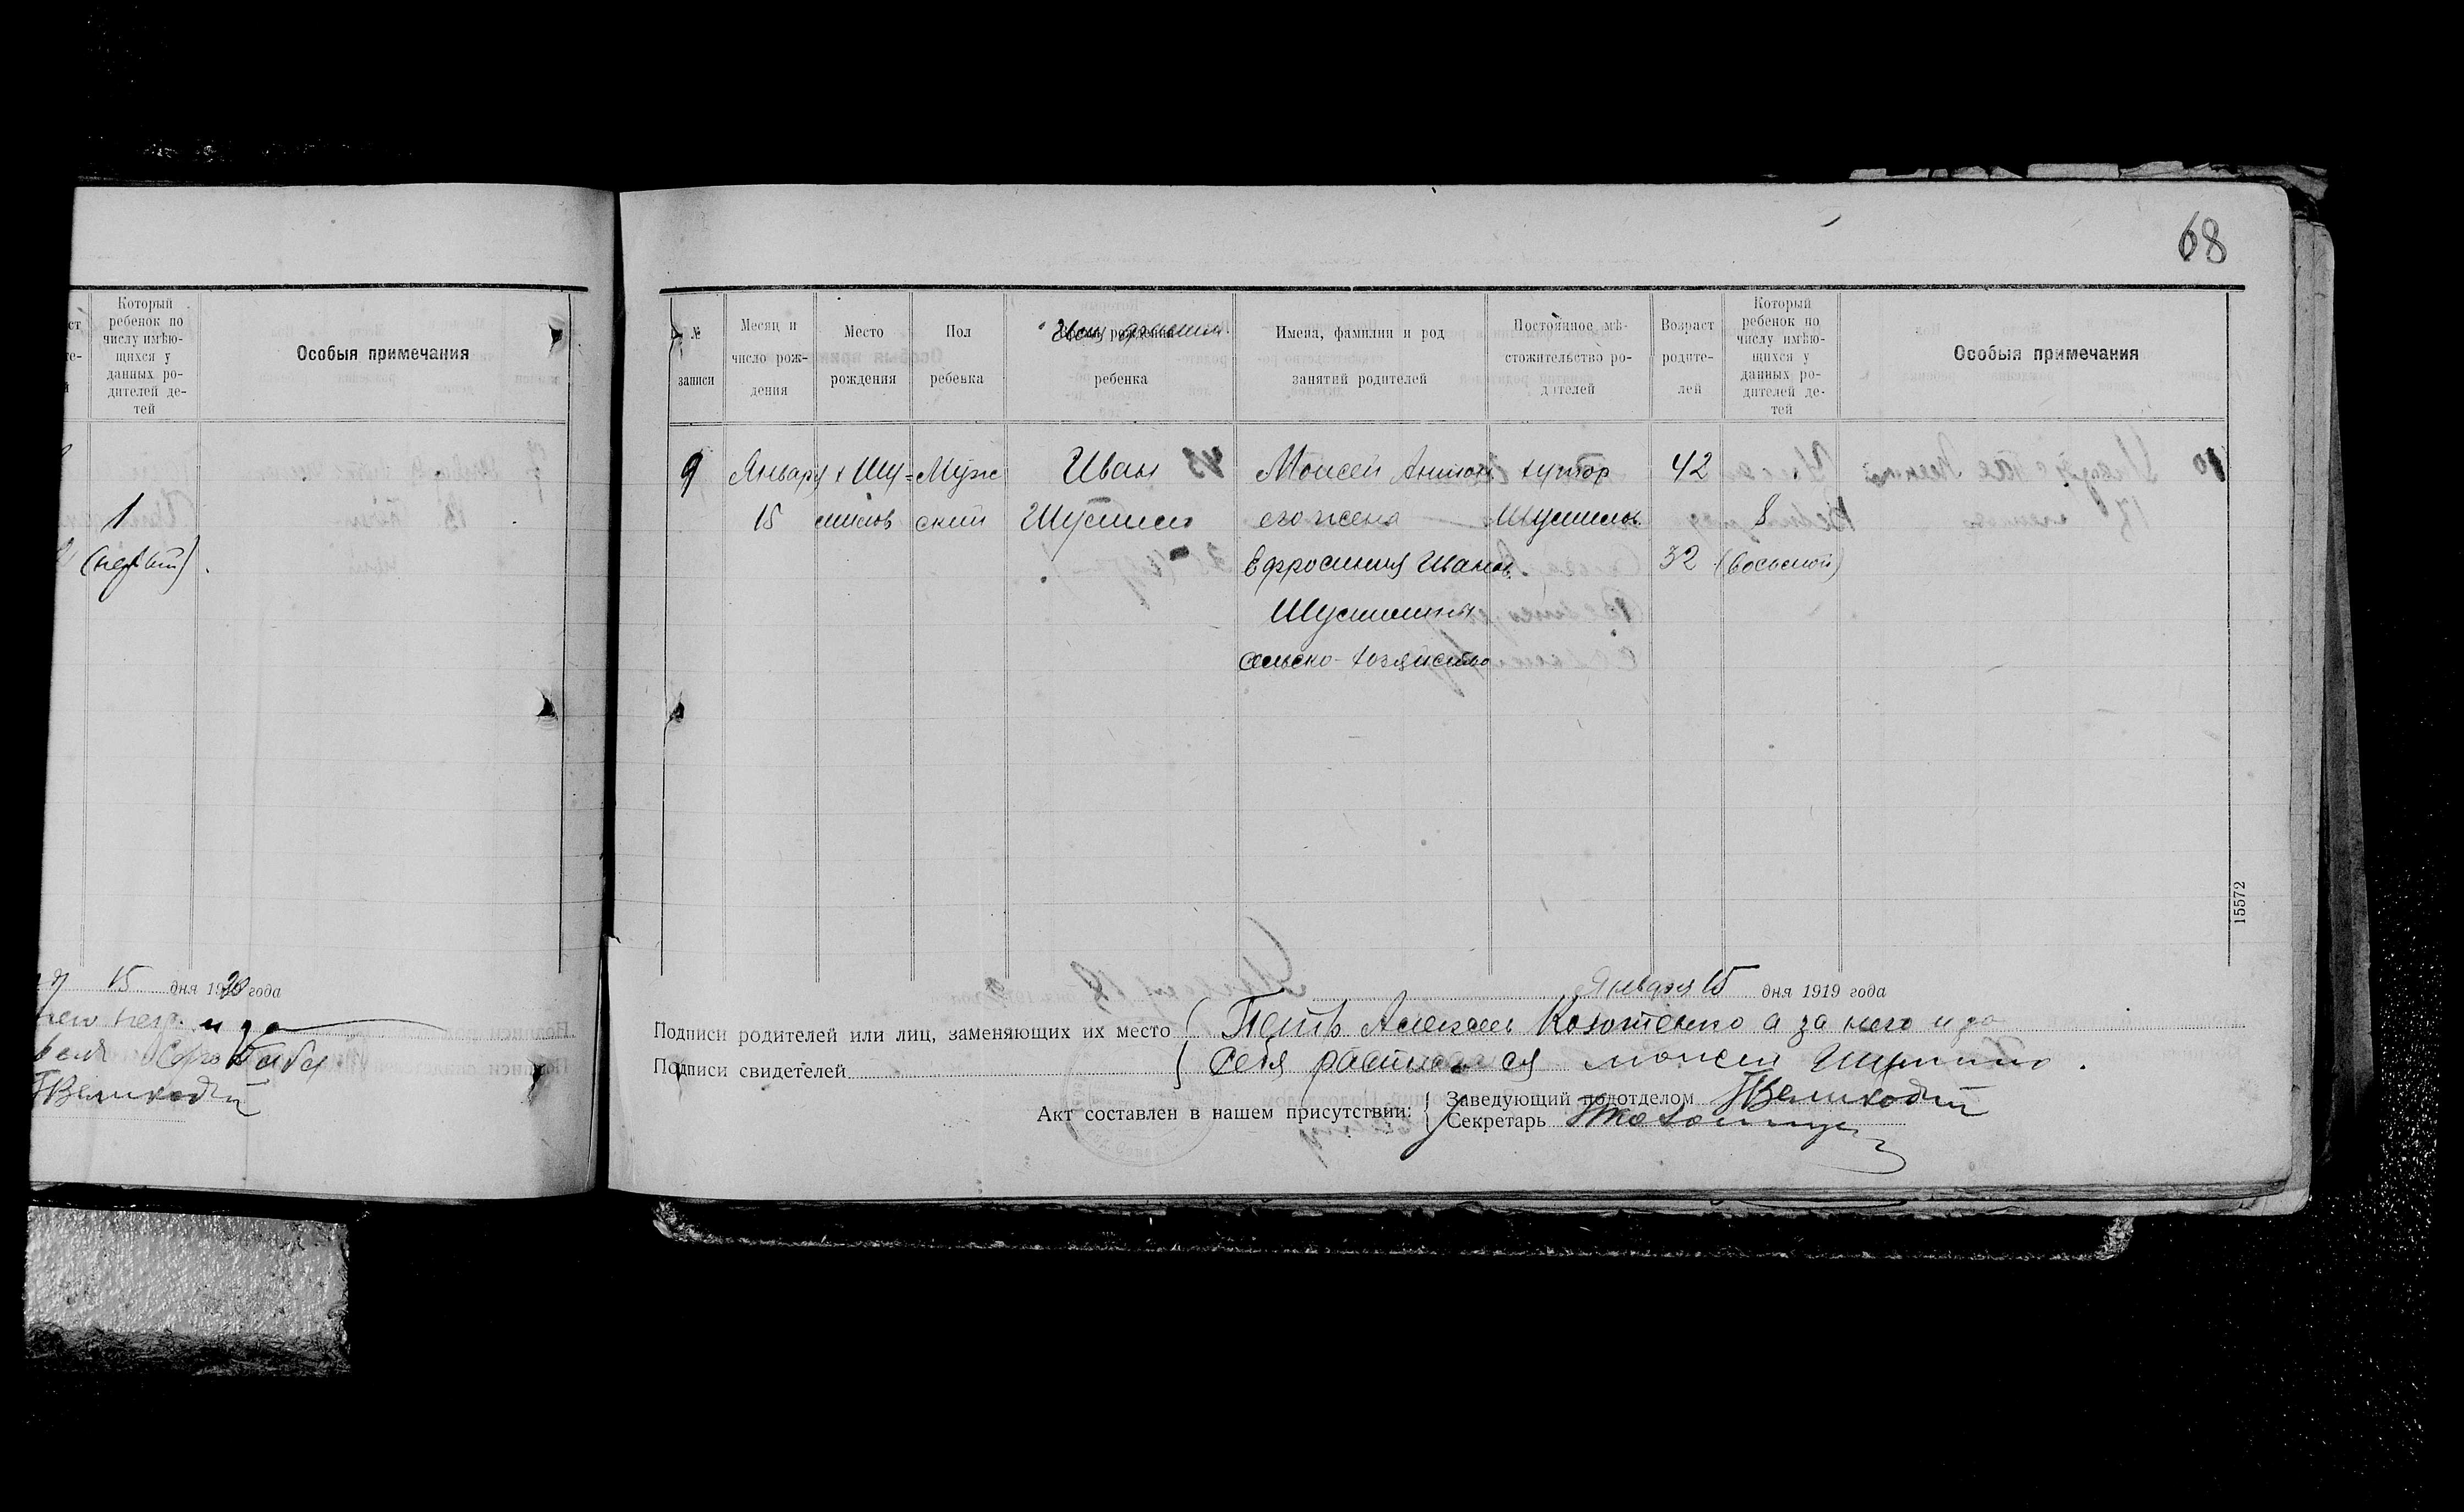 68
Который
ребенок по
числу имѣю-
щихся у
данных ро-
дителей де-
тей
Особыя примечания
1
(первый)
15 дня 1920 года
и за
себя
Великодный
№
записи
Месяц и
число рож-
дения
Место
рождения
Пол
ребенка
Время рождения
Имя, фамилия
ребенка
Имена, фамилии и род
занятий родителей
Постоянное мѣ-
стожительство ро-
дителей
Возраст
родите-
лей
Который
ребенок по
числу имѣю-
щихся у
данных ро-
дителей де-
тей
Особыя примечания
9
Января
15
х Шу=
Муж
ский
Иван
Моисей Антон
его жена
Ефросиния Иванов.
сельско-хозяйство
хутор
42
32
8
(восьмой)
15572
Января 15 дня 1919 года
Подписи родителей или лиц, заменяющих их место
Петр Алексеев а за него и за
Подписи свидетелей
себя расписался Моисей
Акт составлен в нашем присутствии:
Заведующий подотделом Великодный
Секретарь